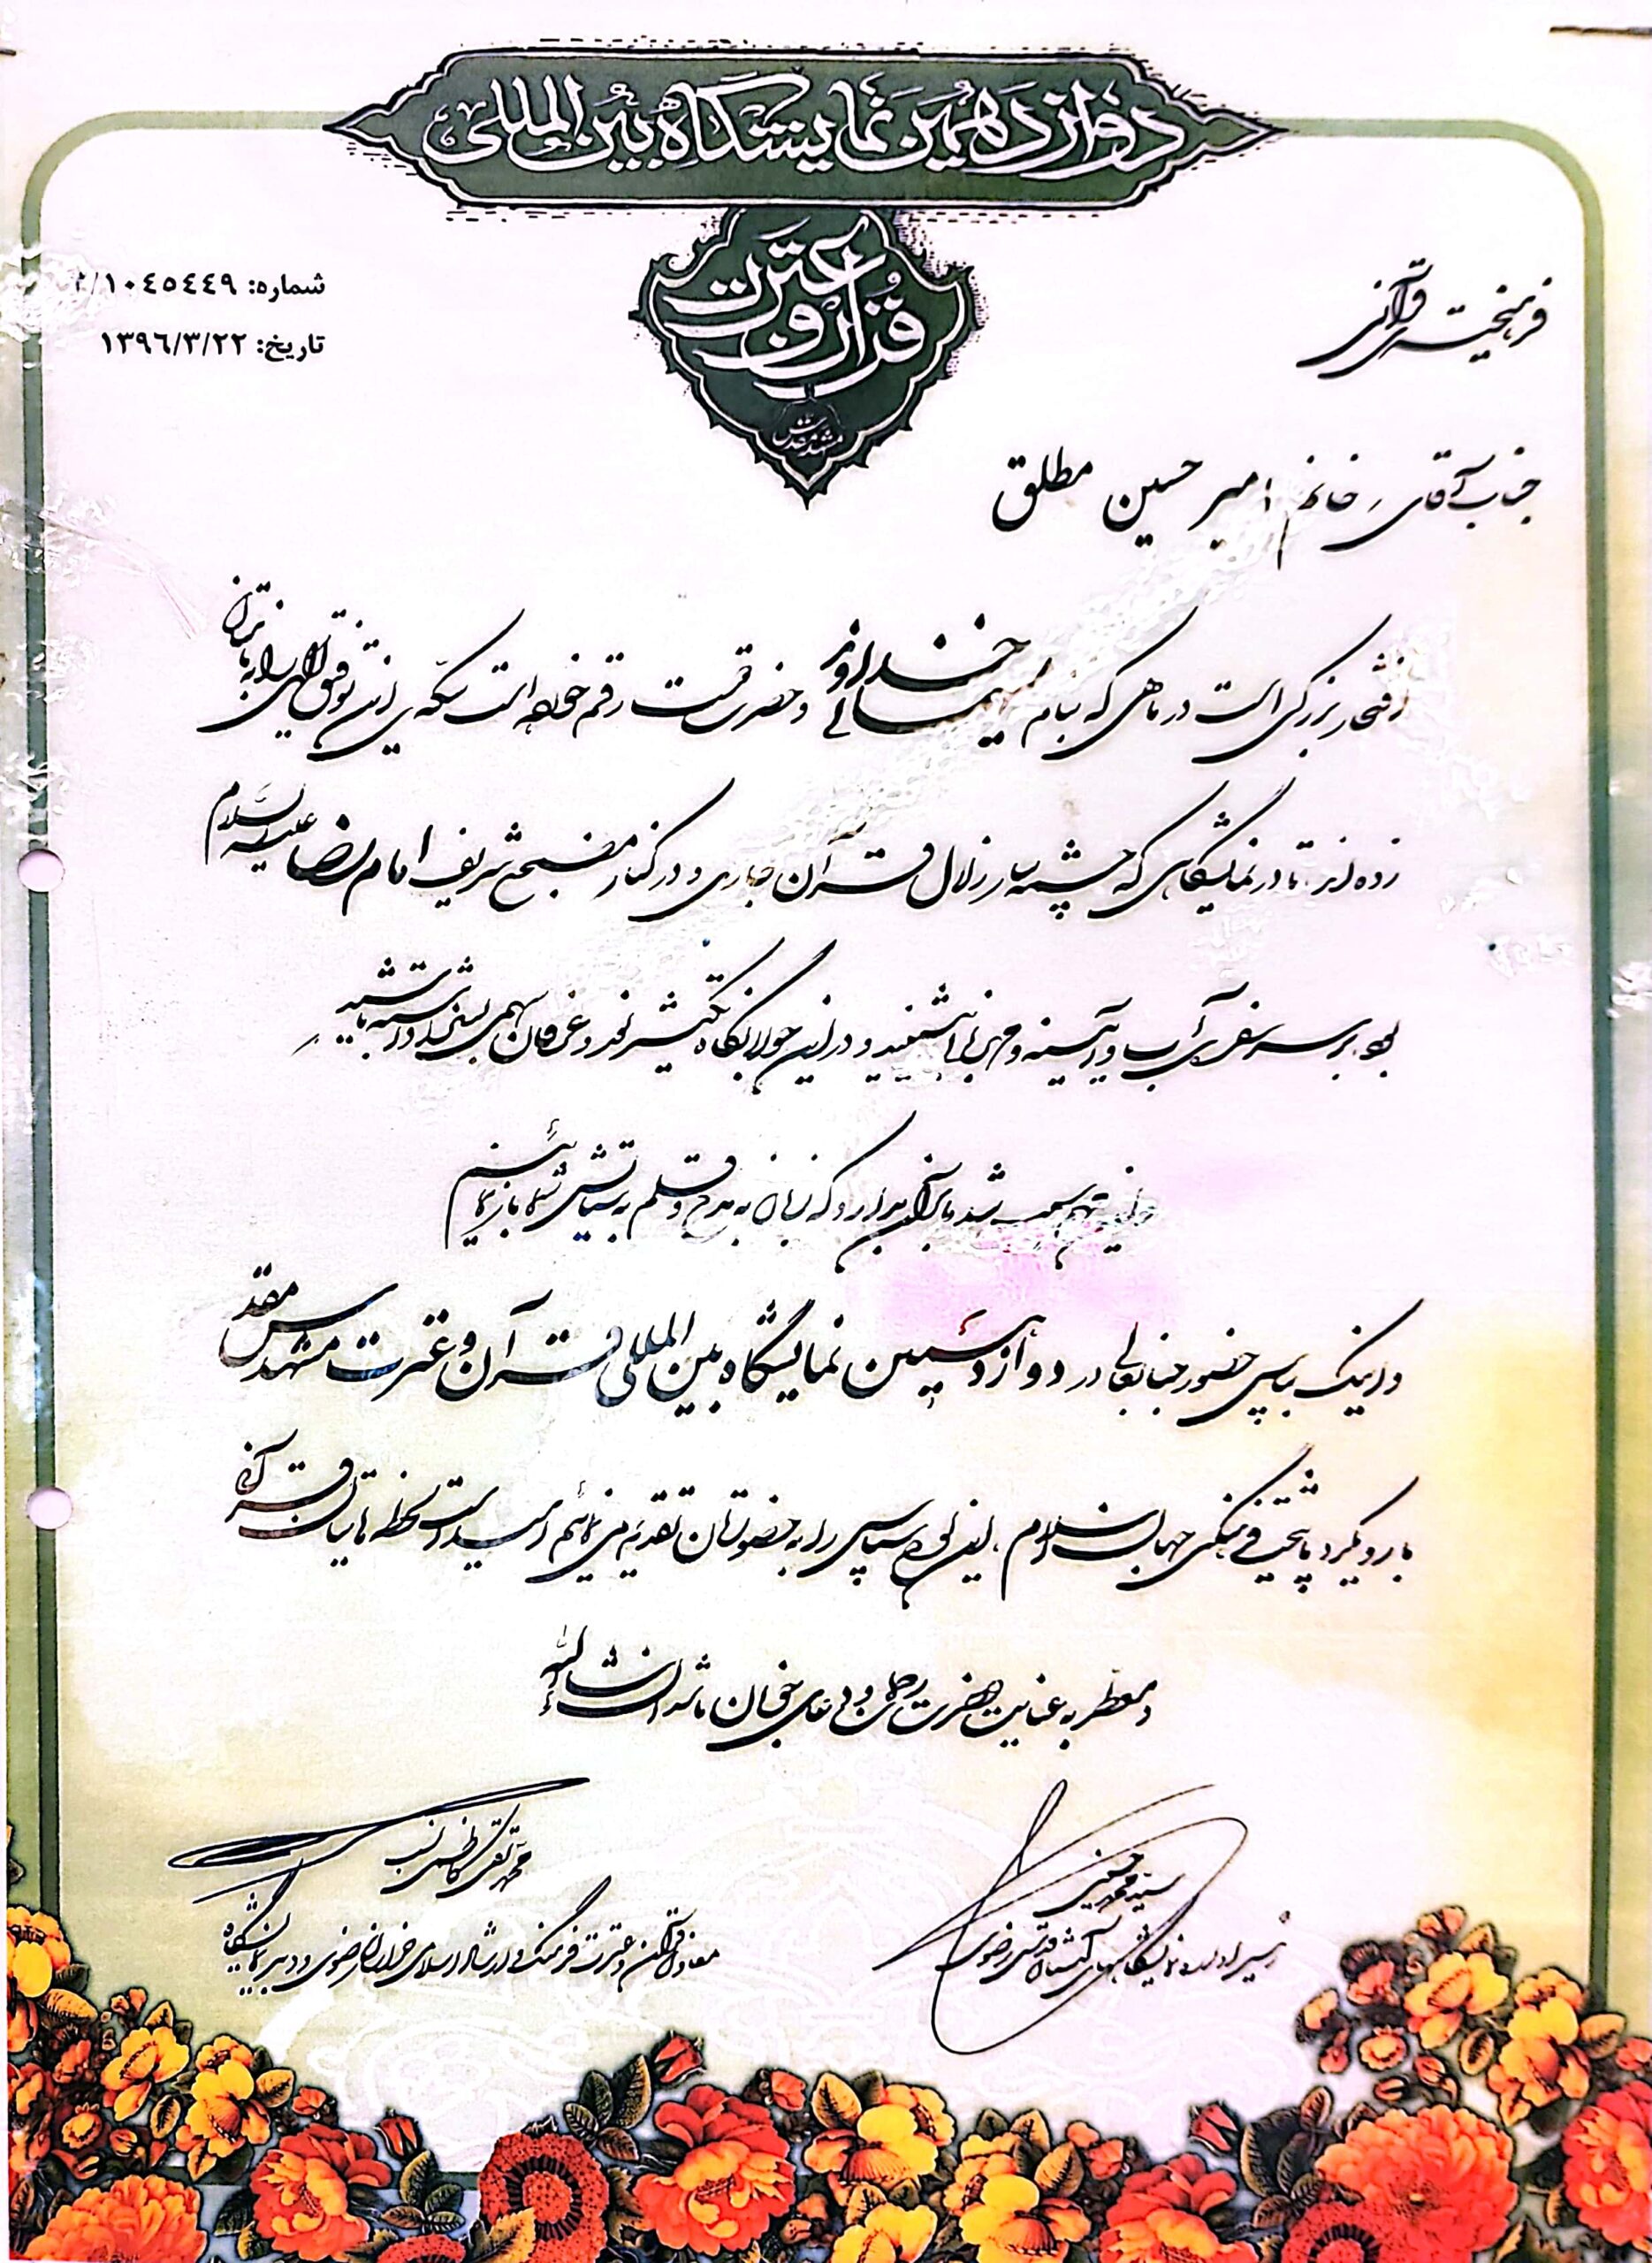 دوازدهمین نمایشگاه بین المللی
قرآن و عترت
مشهد مقدس
شماره: ۲/۱۰۴۵۴۴۹
تاریخ: ۱۳۹۶/۳/۲۲
فرهیخته ی قرآنی
جناب آقای / خانم امیر حسین مطلق
افتخار بزرگی است در ماهی که بنام میهمانی خداوند و حضرت قسمت رقم خواهد است سکه ی این توفیق الهی را به نامتان
زده اند تا در نمایشگاهی که چشمه سار زلال قرآن جاری و در کنار مضجع شریف امام رضا علیه السلام
بود بر سر سفره ی آب و آیینه و مهربانی بنشینید و در این جولانگاه تکثیر نور و عرفان سهمی بسزا داشته باشید
و این مهم سبب شد ما را بر آن بدارد که زبان به مدح و قلم به ستایش شما باز نمائیم
و اینک به پاس حضور جنابعالی در دوازدهمین نمایشگاه بین المللی قرآن و عترت مشهد مقدس
با رویکرد پایتخت فرهنگی جهان اسلام، این لوح سپاس را به حضورتان تقدیم می نمائیم امید است لحظه هایتان قرآنی
و معطر به عنایت حضرت رحمان و دعای خوبان باشد ان شاء الله
سید محمد حسینی
رئیس اداره نمایشگاههای آستان قدس رضوی
محمد تقی کاظمی نسب
معاون قرآن و عترت فرهنگ و ارشاد اسلامی خراسان رضوی و دبیر نمایشگاه